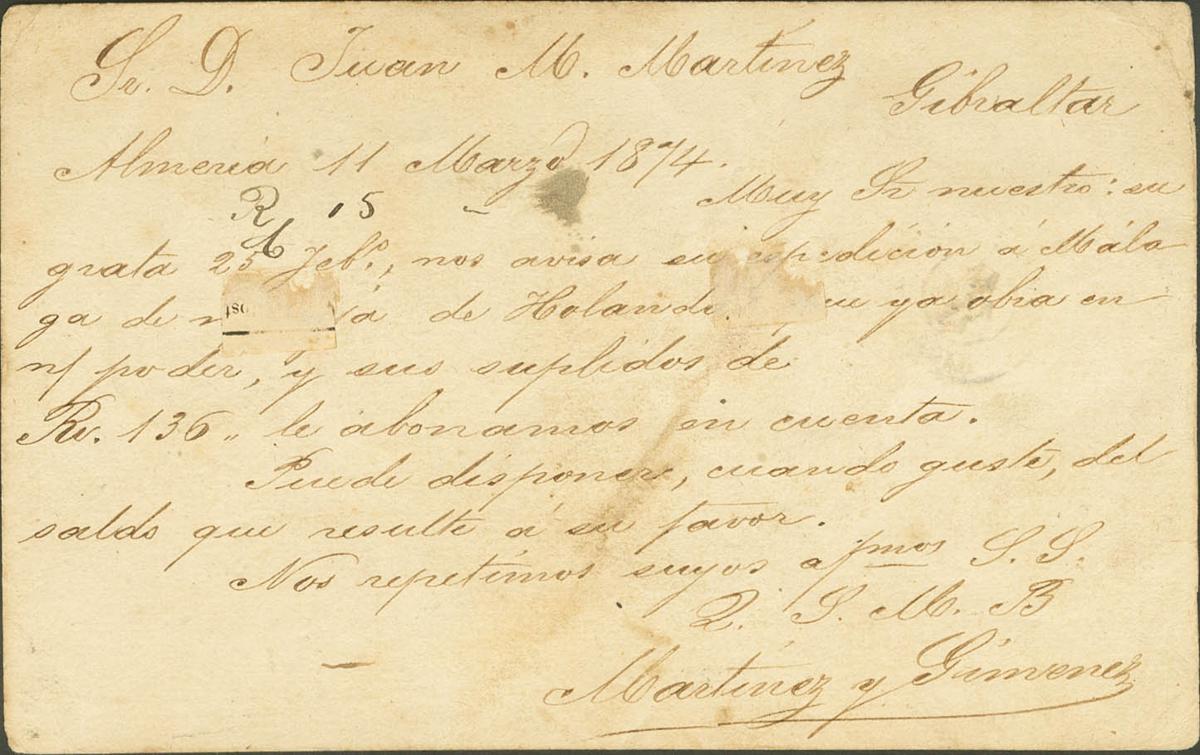 Sr. D. Juan M. Martínez
Gibraltar
Almería 11 Marzo 1874.
R 15
Muy Sr nuestro: su
grata 25 Feb.º, nos avisa su expedición á Mála-
ga de de Holand ya obra en
n/ poder, y sus suplidos de
Rv. 136 „ le abonamos en cuenta.
Puede disponer, cuando guste, del
saldo que resulte á su favor.
Nos repetimos suyos afmos S. S.
Q. S. M. B
Martínez y Gimenez